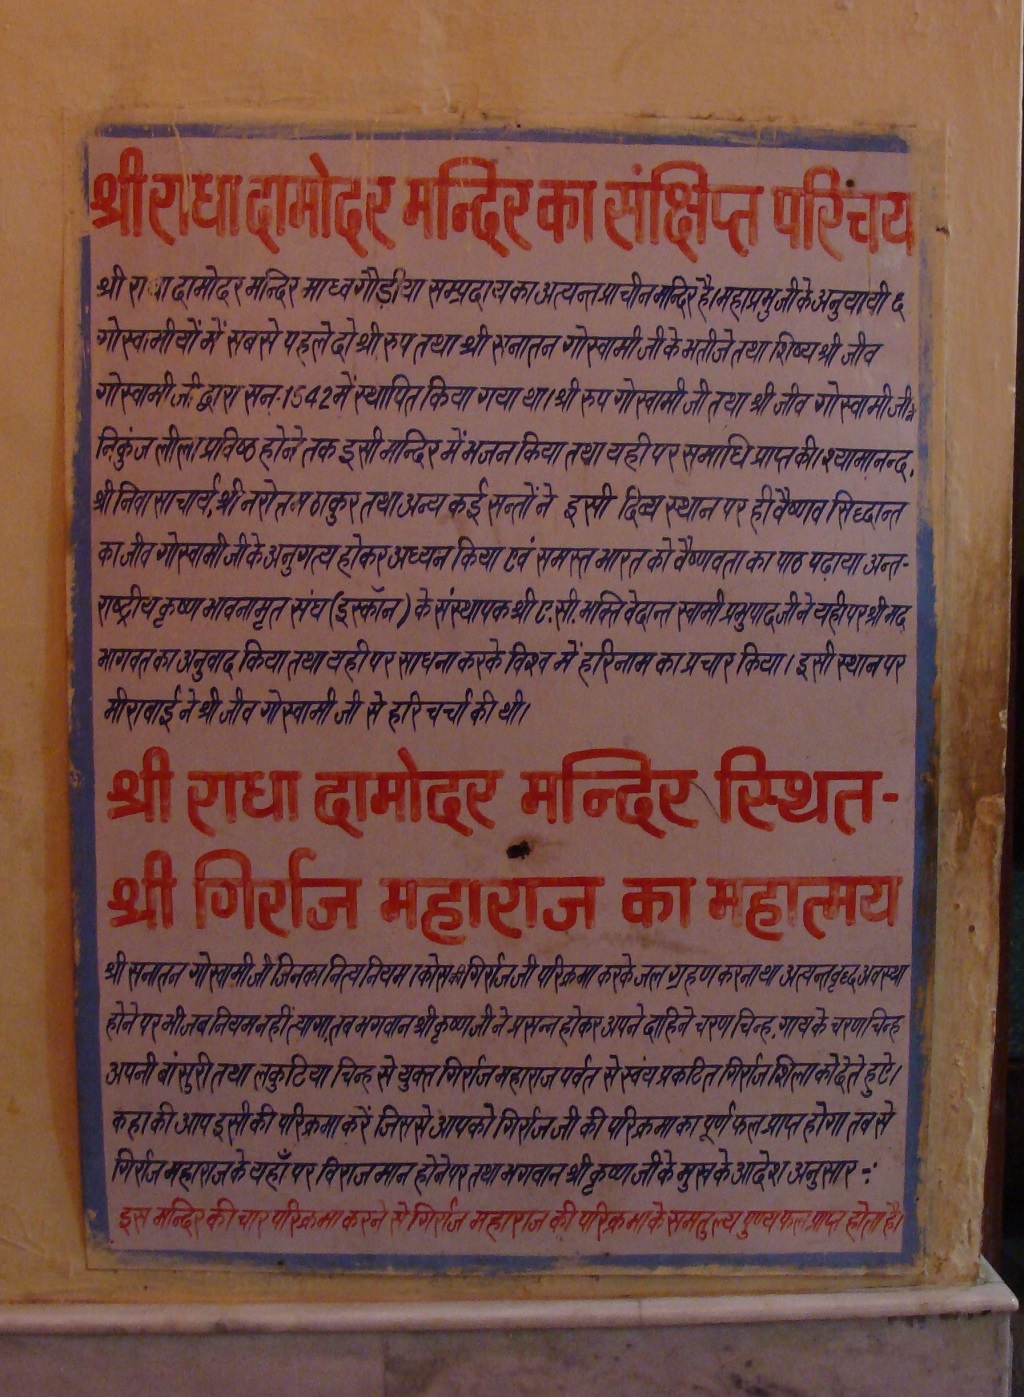 श्री राधा दामोदर मन्दिर का संक्षिप्त परिचय
श्री राधा दामोदर मन्दिर माध्व गौड़ीया सम्प्रदाय का अत्यन्त प्राचीन मन्दिर है। महाप्रभु जी के अनुयायी ६
गोस्वामीयों में सबसे पहले दो श्री रुप तथा श्री सनातन गोस्वामी जी के भतीजे तथा शिष्य श्री जीव
गोस्वामी जी द्वारा सन्-1542 में स्थापित किया गया था। श्री रुप गोस्वामी जी तथा श्री जीव गोस्वामी जी ने
निकुंज लीला प्रविष्ठ होने तक इसी मन्दिर में भजन किया तथा यही पर समाधि प्राप्त की। श्यामानन्द,
श्री निवासाचार्य, श्री नरोत्तम ठाकुर तथा अन्य कई सन्तों ने इसी दिव्य स्थान पर ही वैष्णव सिद्धान्त
का जीव गोस्वामी जी के अनुगत्य होकर अध्यन किया एवं समस्त भारत को वैष्णवता का पाठ पढ़ाया अन्त-
राष्ट्रीय कृष्ण भावनामृत संघ (इस्कॉन) के संस्थापक श्री ए.सी. भक्ति वेदान्त स्वामी प्रभुपाद जी ने यही पर श्री मद्
भागवत का अनुवाद किया तथा यही पर साधना करके विश्व में हरिनाम का प्रचार किया। इसी स्थान पर
मीराबाई ने श्री जीव गोस्वामी जी से हरि चर्चा की थी।
श्री राधा दामोदर मन्दिर स्थित-
श्री गिर्राज महाराज का महात्मय
श्री सनातन गोस्वामी जी जिनका नित्य नियम गिर्राज जी परिक्रमा करके जल ग्रहण करना था अत्यन्त वृद्ध अवस्था
होने पर भी जब नियम नहीं त्यागा, तब भगवान श्री कृष्ण जी ने प्रसन्न होकर अपने दाहिने चरण चिन्ह, गाय के चरण चिन्ह
अपनी बांसुरी तथा लकुटिया चिन्ह से युक्त गिर्राज महाराज पर्वत से स्वंय प्रकटित गिर्राज शिला को देते हुऐ।
कहा की आप इसी की परिक्रमा करें जिससे आपको गिर्राज जी की परिक्रमा का पूर्ण फल प्राप्त होगा तब से
गिर्राज महाराज के यहाँ पर विराजमान होने पर तथा भगवान श्री कृष्ण जी के मुख के आदेश अनुसार -:
इस मन्दिर की चार परिक्रमा करने से गिर्राज महाराज की परिक्रमा के समतुल्य पुण्य फल प्राप्त होता है।